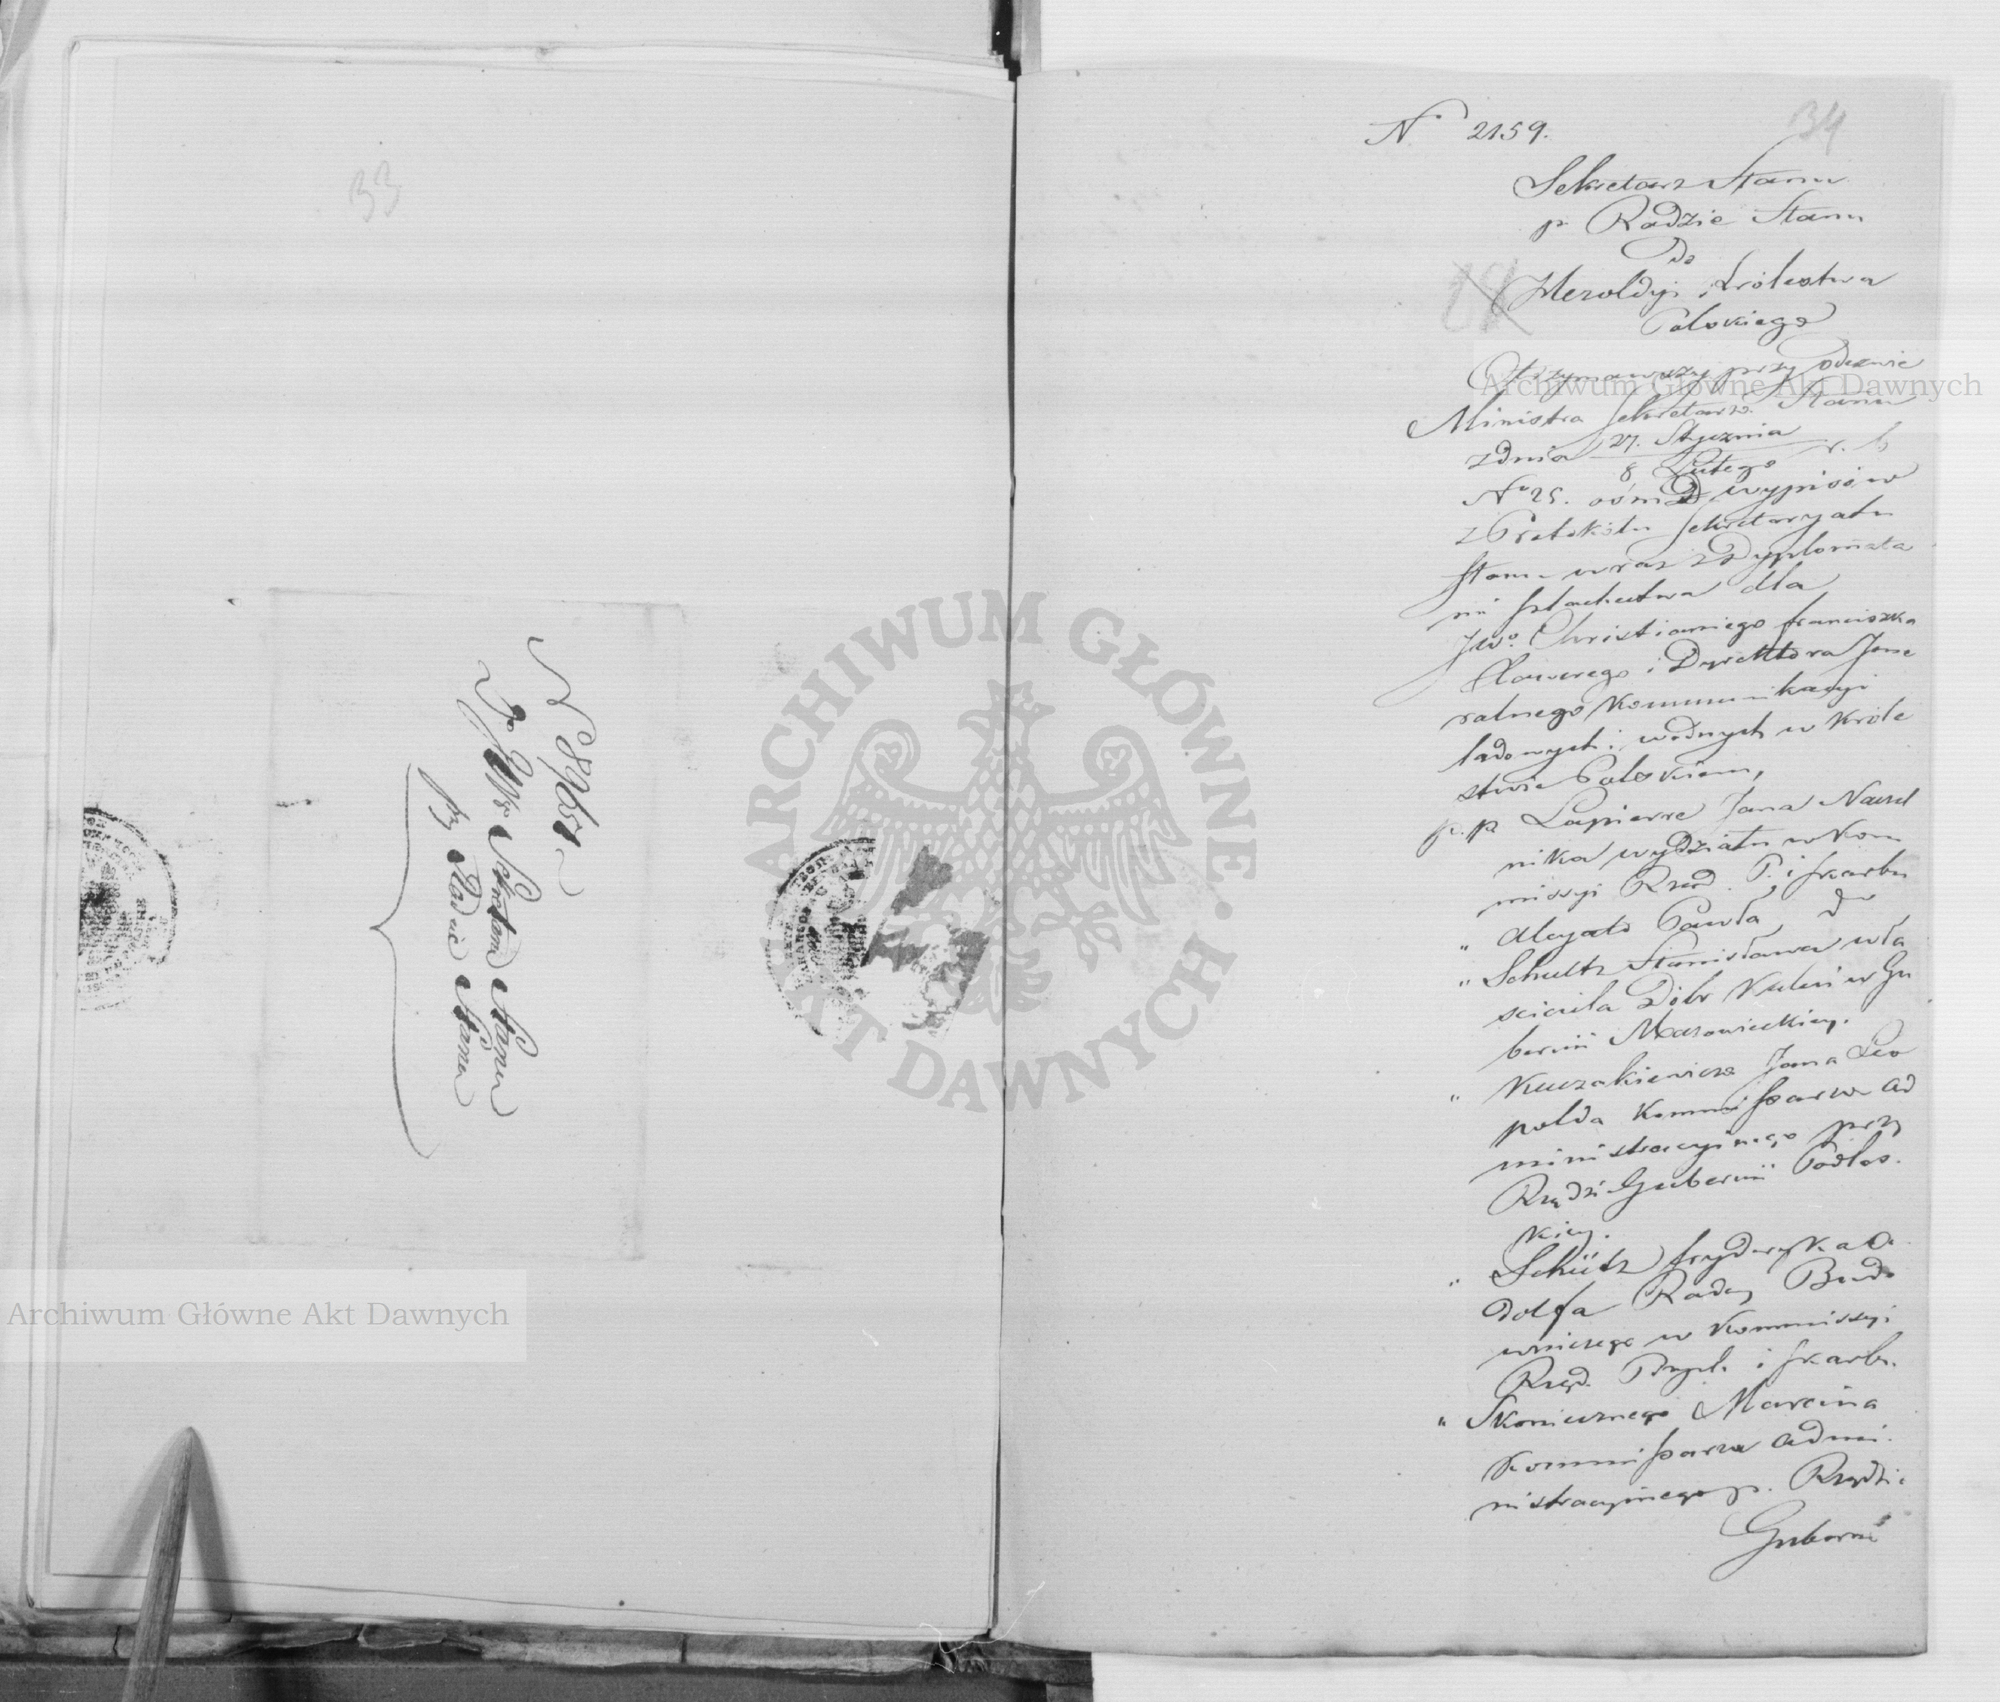 33
N 89651
Do JWo Sekretarza Stanu
przy Radzie Stanu
34
N° 2159.
Sekretarz Stanu
p. Radzie Stanu
Do
Heroldyi Królestwa
Polskiego
Otrzymawszy przy odezwie
Ministra Sekretarza Stanu
z dnia 27. Stycznia
8 Lutego r. b.
N° 25. ośm wypisów
z Protokółu Sekretaryatu
Stanu wraz z Dyplomata
mi szlachectwa dla
JWo. Christianiego Franciszka
Xawerego i Dyrektora Jene
ralnego Kommunikacyi
lądowych i wodnych w Króle
stwie Polskiem,
p.p. Lapierre Jana Naczel
nika wydziału w Kom
missyi Rząd. P. i Skarbu
" Alegato Pawła, do
" Schultz Stanisława wła
ściciela Dóbr w Gu
bernii Mazowieckiey.
" Kuczakiewicza Jana Leo
polda Kommissarza Ad
ministracyjnego przy
Rządzie Gubernii Podlas.
kiey.
" Schütz Frydryka A
dolfa Radcy Budo
wniczego w Kommissyi
Rząd. Przych. i Skarbu.
" Skoniecznego Marcina
Kommissarza admi
nistracyjnego p. Rządzie
Gubernii
Archiwum Główne Akt Dawnych
Archiwum Główne Akt Dawnych
ARCHIWUM GŁÓWNE AKT DAWNYCH